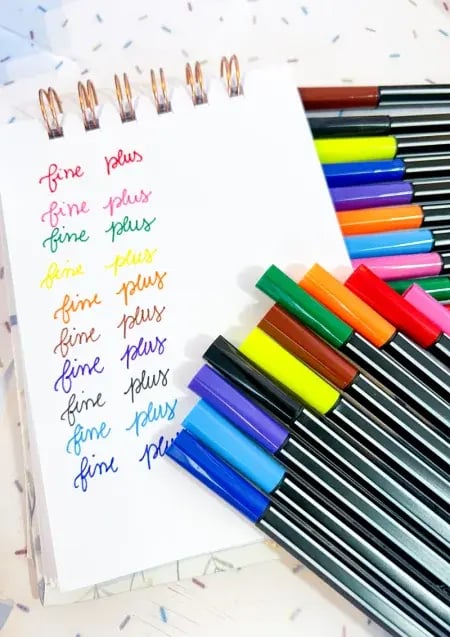 fine plus
fine plus
fine plus
fine plus
fine plus
fine plus
fine plus
fine plus
fine plus
fine plus